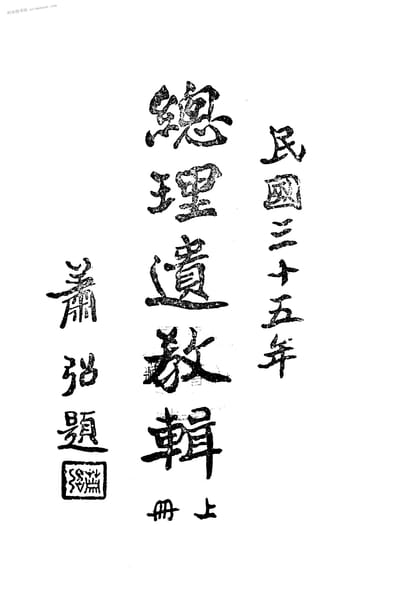 民國三十五年
總理遺教輯
上冊
蕭 題